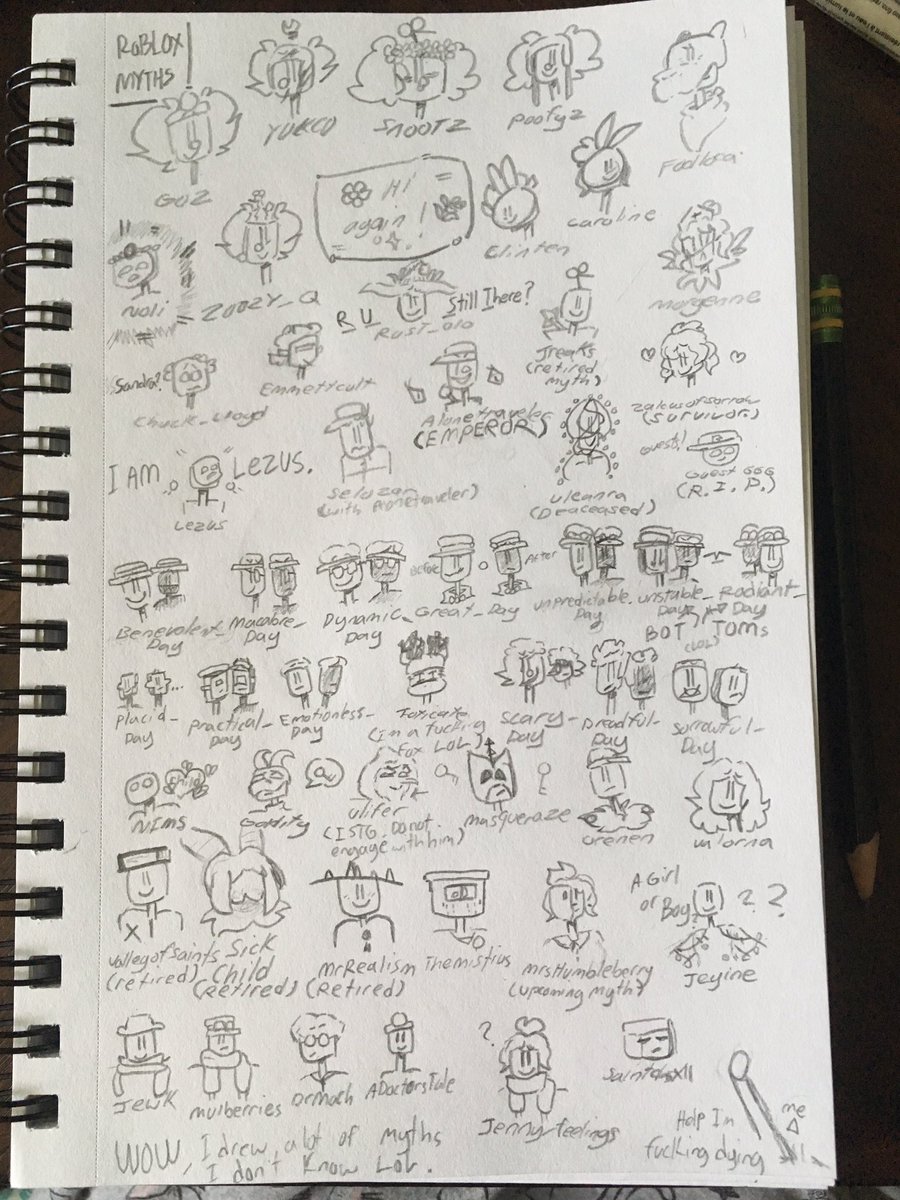 RoBLOX
MYTHS
YUKCO
SnooTZ
poofyz
GOZ
Hi
again!
Clinten
Caroline
Noli
ZOOZY_Q
R U
RUST_010
Still There?
Morgenne
Jreaks
(retired
myth)
Sandra?
Chuck_Lloyd
Emmettcult
Alonetraveler
(EMPEROR)
Zaleusofsorrow
(SURVIVOR)
Guest!
Guest 666
(R.I.P.)
I AM
LEZUS.
Lezus
Seluzar
(with Alonetraveler)
uleanra
(Deaceased)
Before
After
Benevolent_
Day
Macabre_
Day
Dynamic_
Day
Great_Day
unpredictable_
Day
unstable_
Day
Radiant_
Day
BOT
Toms
(LOL)
Placid_
Day
Practical_
Day
Emotionless_
Day
Toxicate
(Im a fucking
Fox LOL)
Scary_
Day
Dreadful_
Day
Sorrowful_
Day
Nims
Child
Goldify
Ulifer
(ISTG. Do not
engage with him)
masqueraze
Orenen
Valorna
ValleyofSaints
(retired)
Sick
_Child
(Retired)
MrRealism
(Retired)
Themistius
mrsHumbleberry
(upcoming myth)
A Girl
or Boy
? ?
Jeyine
Jewk
mulberries
DrMach
ADoctorsTale
?
Jenny_feelings
WOW, I drew a lot of myths
I don't know LOL.
Help Im
fucking dying
me